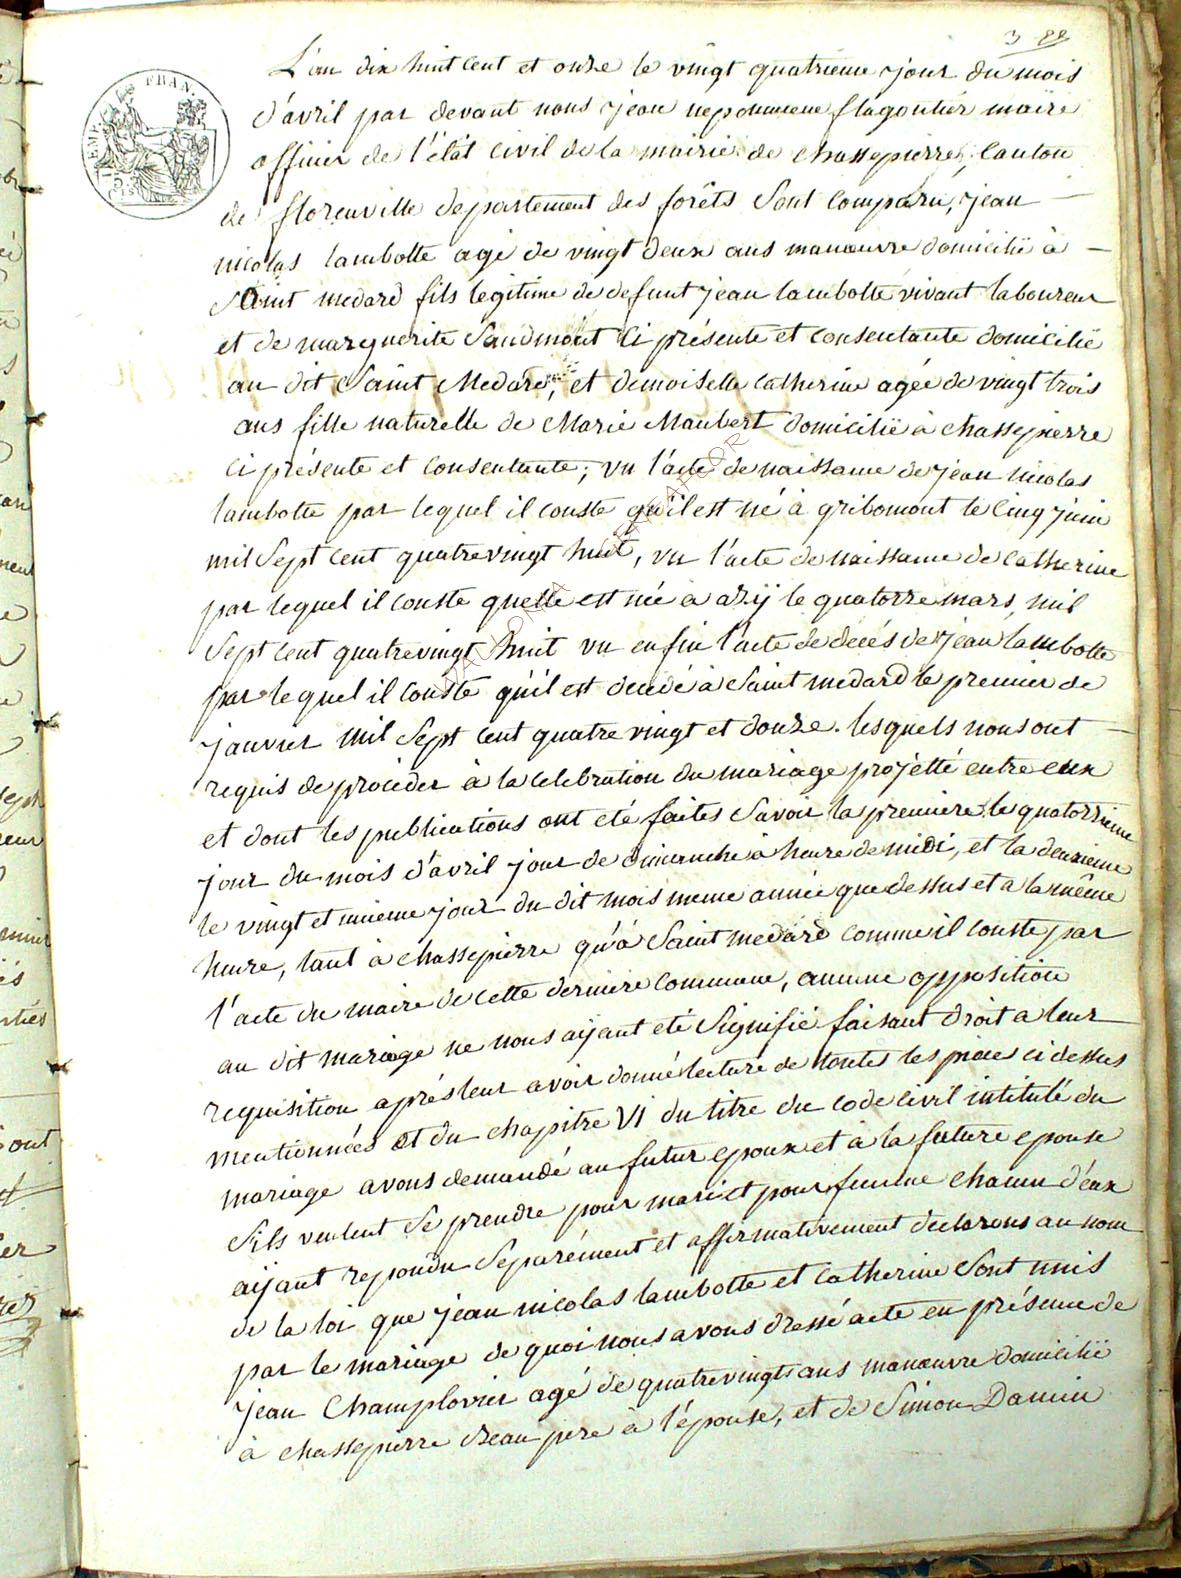 3 88
EMP. FRAN.
L'an dix huit cent et onze le vingt quatrieme jour du mois
d'avril par devant nous jean nepomucene flagontier maire
officier de l'état civil de la mairie de chassepierre, canton
de florenville departement des forêts Sont comparu, jean
nicolas lambotte agé de vingt deux ans manœuvre domicilié à
Saint medard fils legitime de defunt jean lambotte vivant laboureur
et de marguerite Saudmont ci présente et consentante domicilié
au dit Saint Medard, et demoiselle catherine agée de vingt trois
ans fille naturelle de Marie Maubert domicilié à chassepierre
ci présente et consentante; vu l'acte de naissance de jean nicolas
lambotte par lequel il conste qu'il est né à gribomont le cinq juin
mil Sept cent quatre vingt huit, vu l'acte de naissance de catherine
par lequel il conste quelle est née à azÿ le quatorze mars mil
Sept cent quatre vingt huit vu enfin l'acte de decés de jean lambotte
par lequel il conste qu'il est decedé à Saint medard le premier de
janvier mil Sept cent quatre vingt et douze. lesquels nous ont
requis de procéder à la celebration du mariage projetté entre eux
et dont les publications ont eté faites Savoir la premiere le quatorzieme
jour du mois d'avril jour de dimanche à heure de midi, et la deuxieme
le vingt et unieme jour du dit mois meme année que dessus et a la même
heure, tant à chassepierre qu'à Saint medard comme il conste par
l'acte du maire de cette derniere commune, aucune opposition
au dit mariage ne nous aÿant eté Signifié faisant droit a leur
requisition aprés leur avoir donné lecture de toutes les piece ci dessus
mentionnées et du chapitre VI du titre du code civil intitulé du
mariage avons demandé au futur epoux et à la future epouse
S'ils veulent Se prendre pour mari et pour femme chacun d'eux
aÿant repondu Separément et affirmativement declarons au nom
de la loi que jean nicolas lambotte et catherine Sont unis
par le mariage de quoi nous avons dressé acte en présence de
jean Champlovier agé de quatre vingts ans manœuvre domicilié
à chassepierre Beau pere à l'épouse, et de Simon Damin